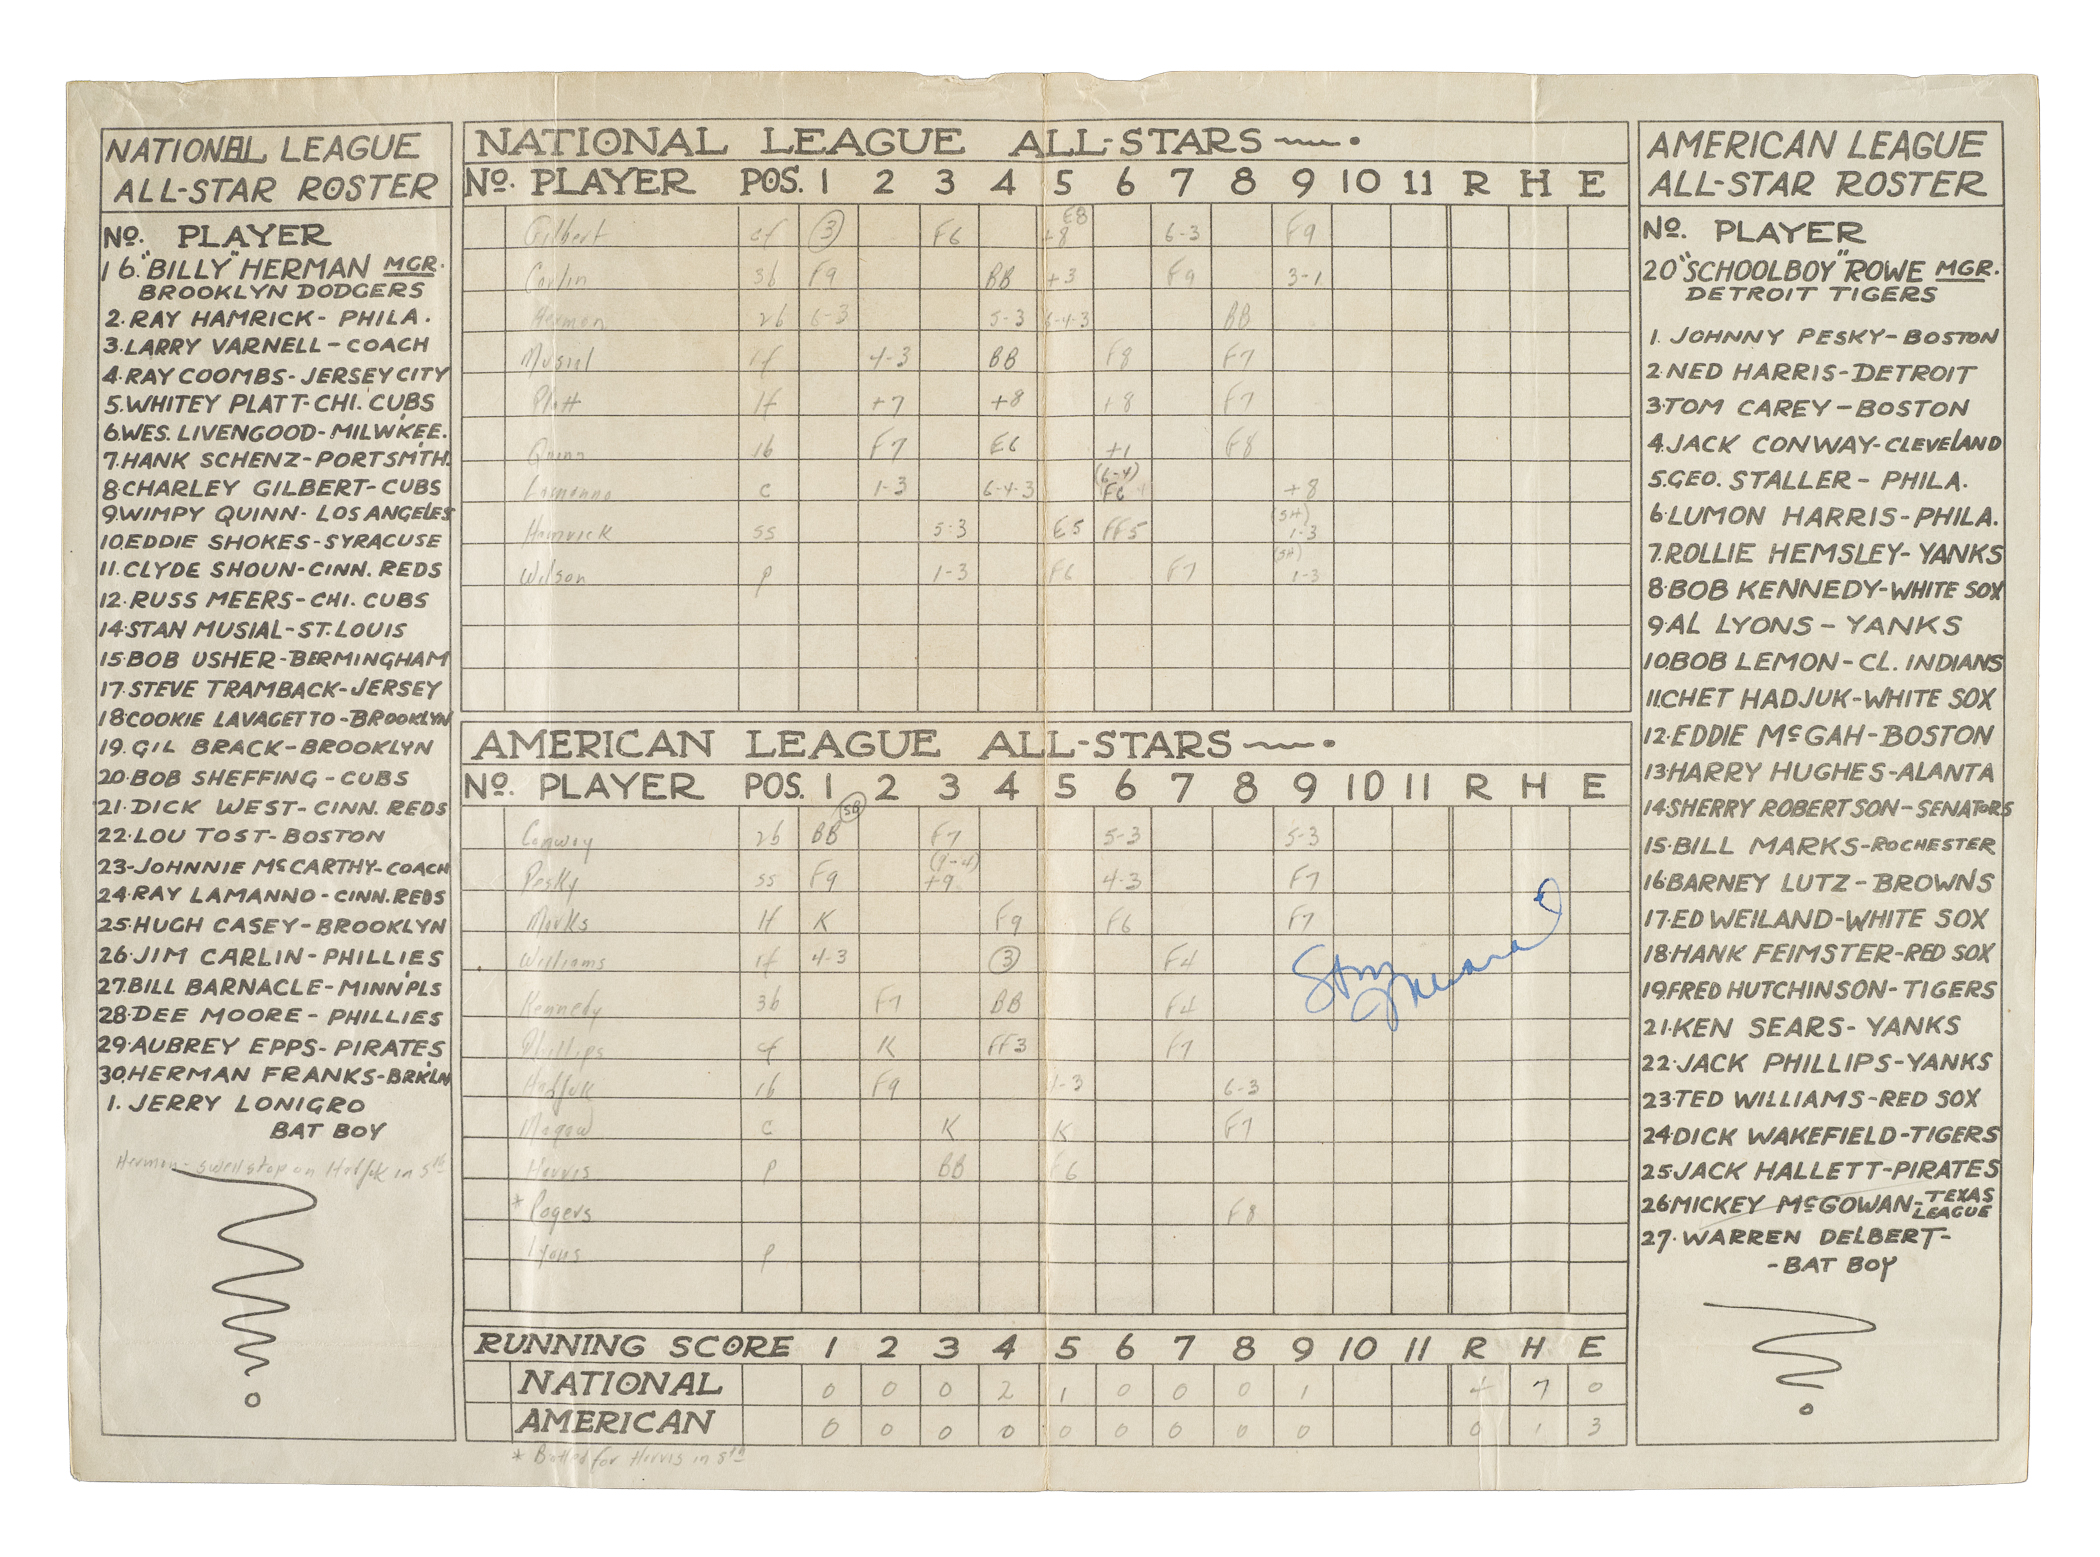 NATIONAL LEAGUE
ALL-STAR ROSTER
No. PLAYER
16. "BILLY" HERMAN MGR.
BROOKLYN DODGERS
2. RAY HAMRICK - PHILA.
3. LARRY VARNELL - COACH
4. RAY COOMBS - JERSEY CITY
5. WHITEY PLATT - CHI. CUBS
6. WES. LIVENGOOD - MILWKEE.
7. HANK SCHENZ - PORTSMTH.
8. CHARLEY GILBERT - CUBS
9. WIMPY QUINN - LOS ANGELES
10. EDDIE SHOKES - SYRACUSE
11. CLYDE SHOUN - CINN. REDS
12. RUSS MEERS - CHI. CUBS
14. STAN MUSIAL - ST. LOUIS
15. BOB USHER - BERMINGHAM
17. STEVE TRAMBACK - JERSEY
18. COOKIE LAVAGETTO - BROOKLYN
19. GIL BRACK - BROOKLYN
20. BOB SHEFFING - CUBS
21. DICK WEST - CINN. REDS
22. LOU TOST - BOSTON
23 - JOHNNIE McCARTHY - COACH
24. RAY LAMANNO - CINN. REDS
25. HUGH CASEY - BROOKLYN
26. JIM CARLIN - PHILLIES
27. BILL BARNACLE - MINN'PLS
28. DEE MOORE - PHILLIES
29. AUBREY EPPS - PIRATES
30. HERMAN FRANKS - BRK'LN
1. JERRY LONIGRO
BAT BOY
Herman - swell stop on Hadjuk in 5th
NATIONAL LEAGUE ALL-STARS
No. PLAYER POS. 1 2 3 4 5 6 7 8 9 10 11 R H E
Gilbert cf 3 F6 E8 +8 6-3 F9
Carlin 3b F9 BB +3 F9 3-1
Herman 2b 6-3 5-3 6-4-3 BB
Musial rf 4-3 BB F8 F7
Platt lf +7 +8 +8 F7
Quinn 1b F7 E6 +1 F8
Lamanno c 1-3 6-4-3 (6-4) F6 +8
Hamrick ss 5-3 E5 FF5 (SH) 1-3
Wilson p 1-3 F6 F7 (SH) 1-3
AMERICAN LEAGUE ALL-STARS
No. PLAYER POS. 1 2 3 4 5 6 7 8 9 10 11 R H E
Conway 2b BB SB F7 5-3 5-3
Pesky ss F9 (9-4) +9 4-3 F7
Marks lf K F9 F6 F7
Williams rf 4-3 3 F4
Kennedy 3b F7 BB F4
Phillips cf K FF3 F7
Hadjuk 1b F9 1-3 6-3
Magaw c K K F7
Harris p BB F6
* Rogers F8
Lyons p
Stan Musial
RUNNING SCORE 1 2 3 4 5 6 7 8 9 10 11 R H E
NATIONAL 0 0 0 2 1 0 0 0 1 4 7 0
AMERICAN 0 0 0 0 0 0 0 0 0 0 1 3
* Batted for Harris in 8th
AMERICAN LEAGUE
ALL-STAR ROSTER
No. PLAYER
20 "SCHOOLBOY" ROWE MGR.
DETROIT TIGERS
1. JOHNNY PESKY - BOSTON
2. NED HARRIS - DETROIT
3. TOM CAREY - BOSTON
4. JACK CONWAY - CLEVELAND
5. GEO. STALLER - PHILA.
6. LUMON HARRIS - PHILA.
7. ROLLIE HEMSLEY - YANKS
8. BOB KENNEDY - WHITE SOX
9. AL LYONS - YANKS
10. BOB LEMON - CL. INDIANS
11. CHET HADJUK - WHITE SOX
12. EDDIE McGAH - BOSTON
13. HARRY HUGHES - ALANTA
14. SHERRY ROBERTSON - SENATORS
15. BILL MARKS - ROCHESTER
16. BARNEY LUTZ - BROWNS
17. ED WEILAND - WHITE SOX
18. HANK FEIMSTER - RED SOX
19. FRED HUTCHINSON - TIGERS
21. KEN SEARS - YANKS
22. JACK PHILLIPS - YANKS
23. TED WILLIAMS - RED SOX
24. DICK WAKEFIELD - TIGERS
25. JACK HALLETT - PIRATES
26. MICKEY McGOWAN - TEXAS LEAGUE
27. WARREN DELBERT -
- BAT BOY